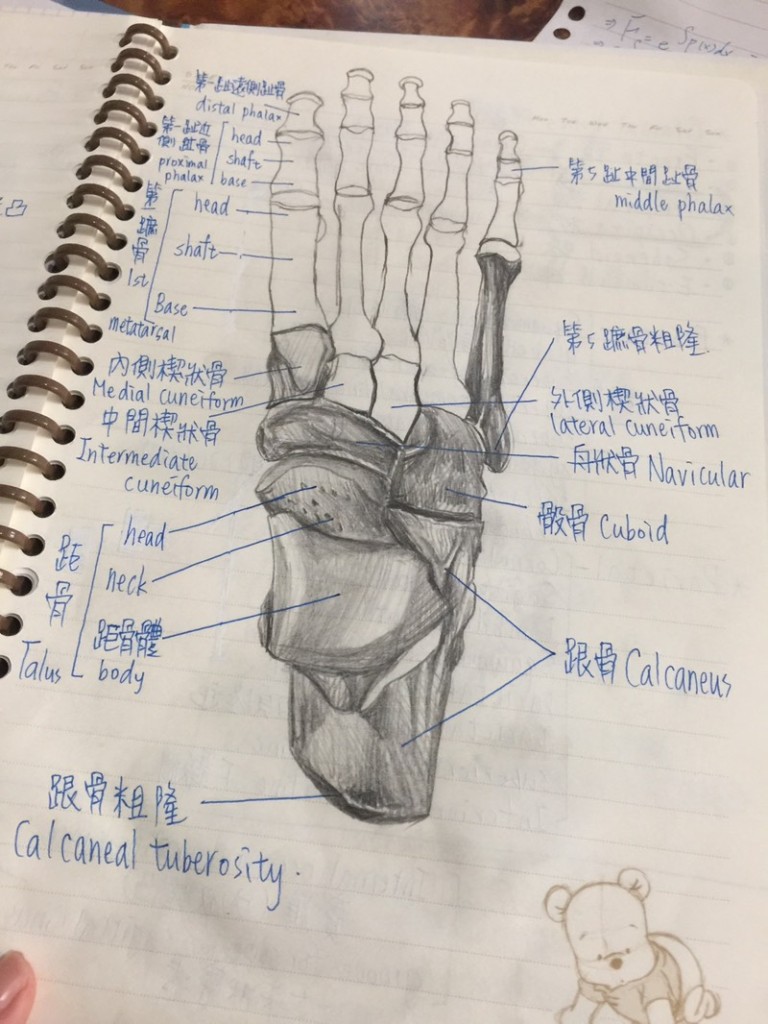 第一趾遠側趾骨
distal phalax
第一趾近
側趾骨
proximal
phalax
head
shaft
base
第
蹠
骨
1st
metatarsal
head
shaft
Base
內側楔狀骨
Medial cuneiform
中間楔狀骨
Intermediate
cuneiform
距
骨
Talus
head
neck
距骨體
body
跟骨粗隆
Calcaneal tuberosity.
第5趾中間趾骨
middle phalax
第5蹠骨粗隆
外側楔狀骨
lateral cuneiform
舟狀骨 Navicular
骰骨 Cuboid
跟骨 Calcaneus